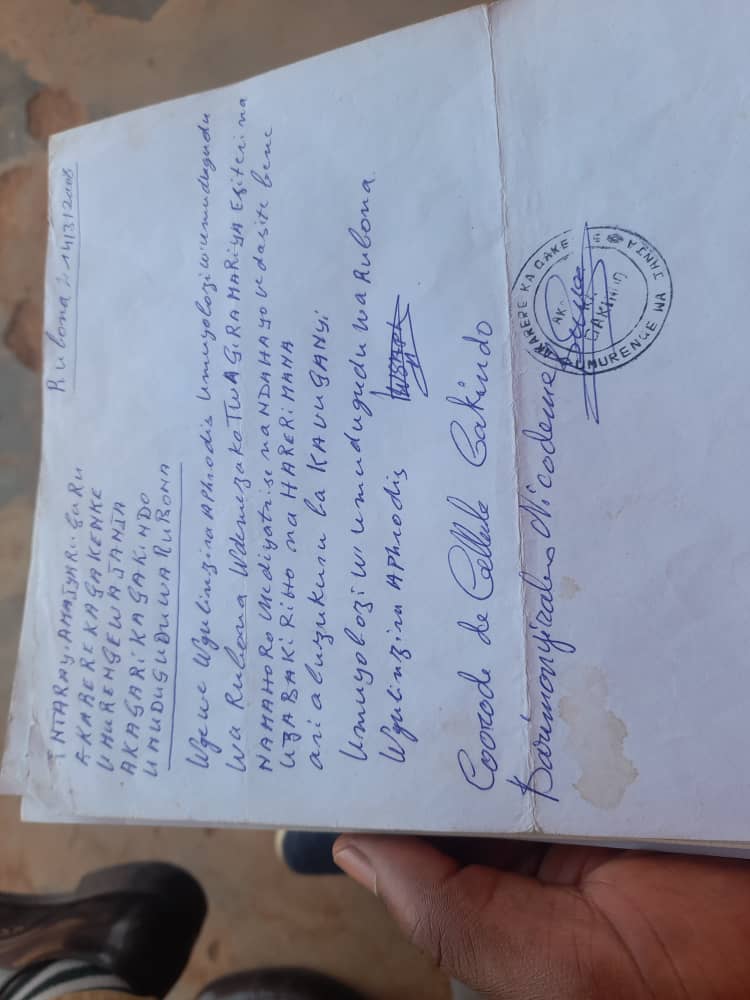 INTARAY. AMAJYARUGURU
AKARERE KAGAKENKE
UMURENGEWAJANJA
AKAGARI KAGAKINDO
UMUDUGUDUWARUBONA
Rubona 14/3/2008
Njewe Ngulinzira Aphrodis Umuyobozi w'umudugudu
wa Rubona Ndemezako TWAGIRAMARIYA Esiteri na
NAMAHORO Mediyatrise na NDAHAYO vedasite bene
UZABAKIRIHO na HARERIMANA
ari abuzukuru ba KAVUGANYI
Umuyobozi w'umudugudu wa Rubona
Ngulinzira Aphrodis
Coorode de Cellule Gakindo
Nicodeme
AKARERE KA GAKE
UMURENGE WA JANJA